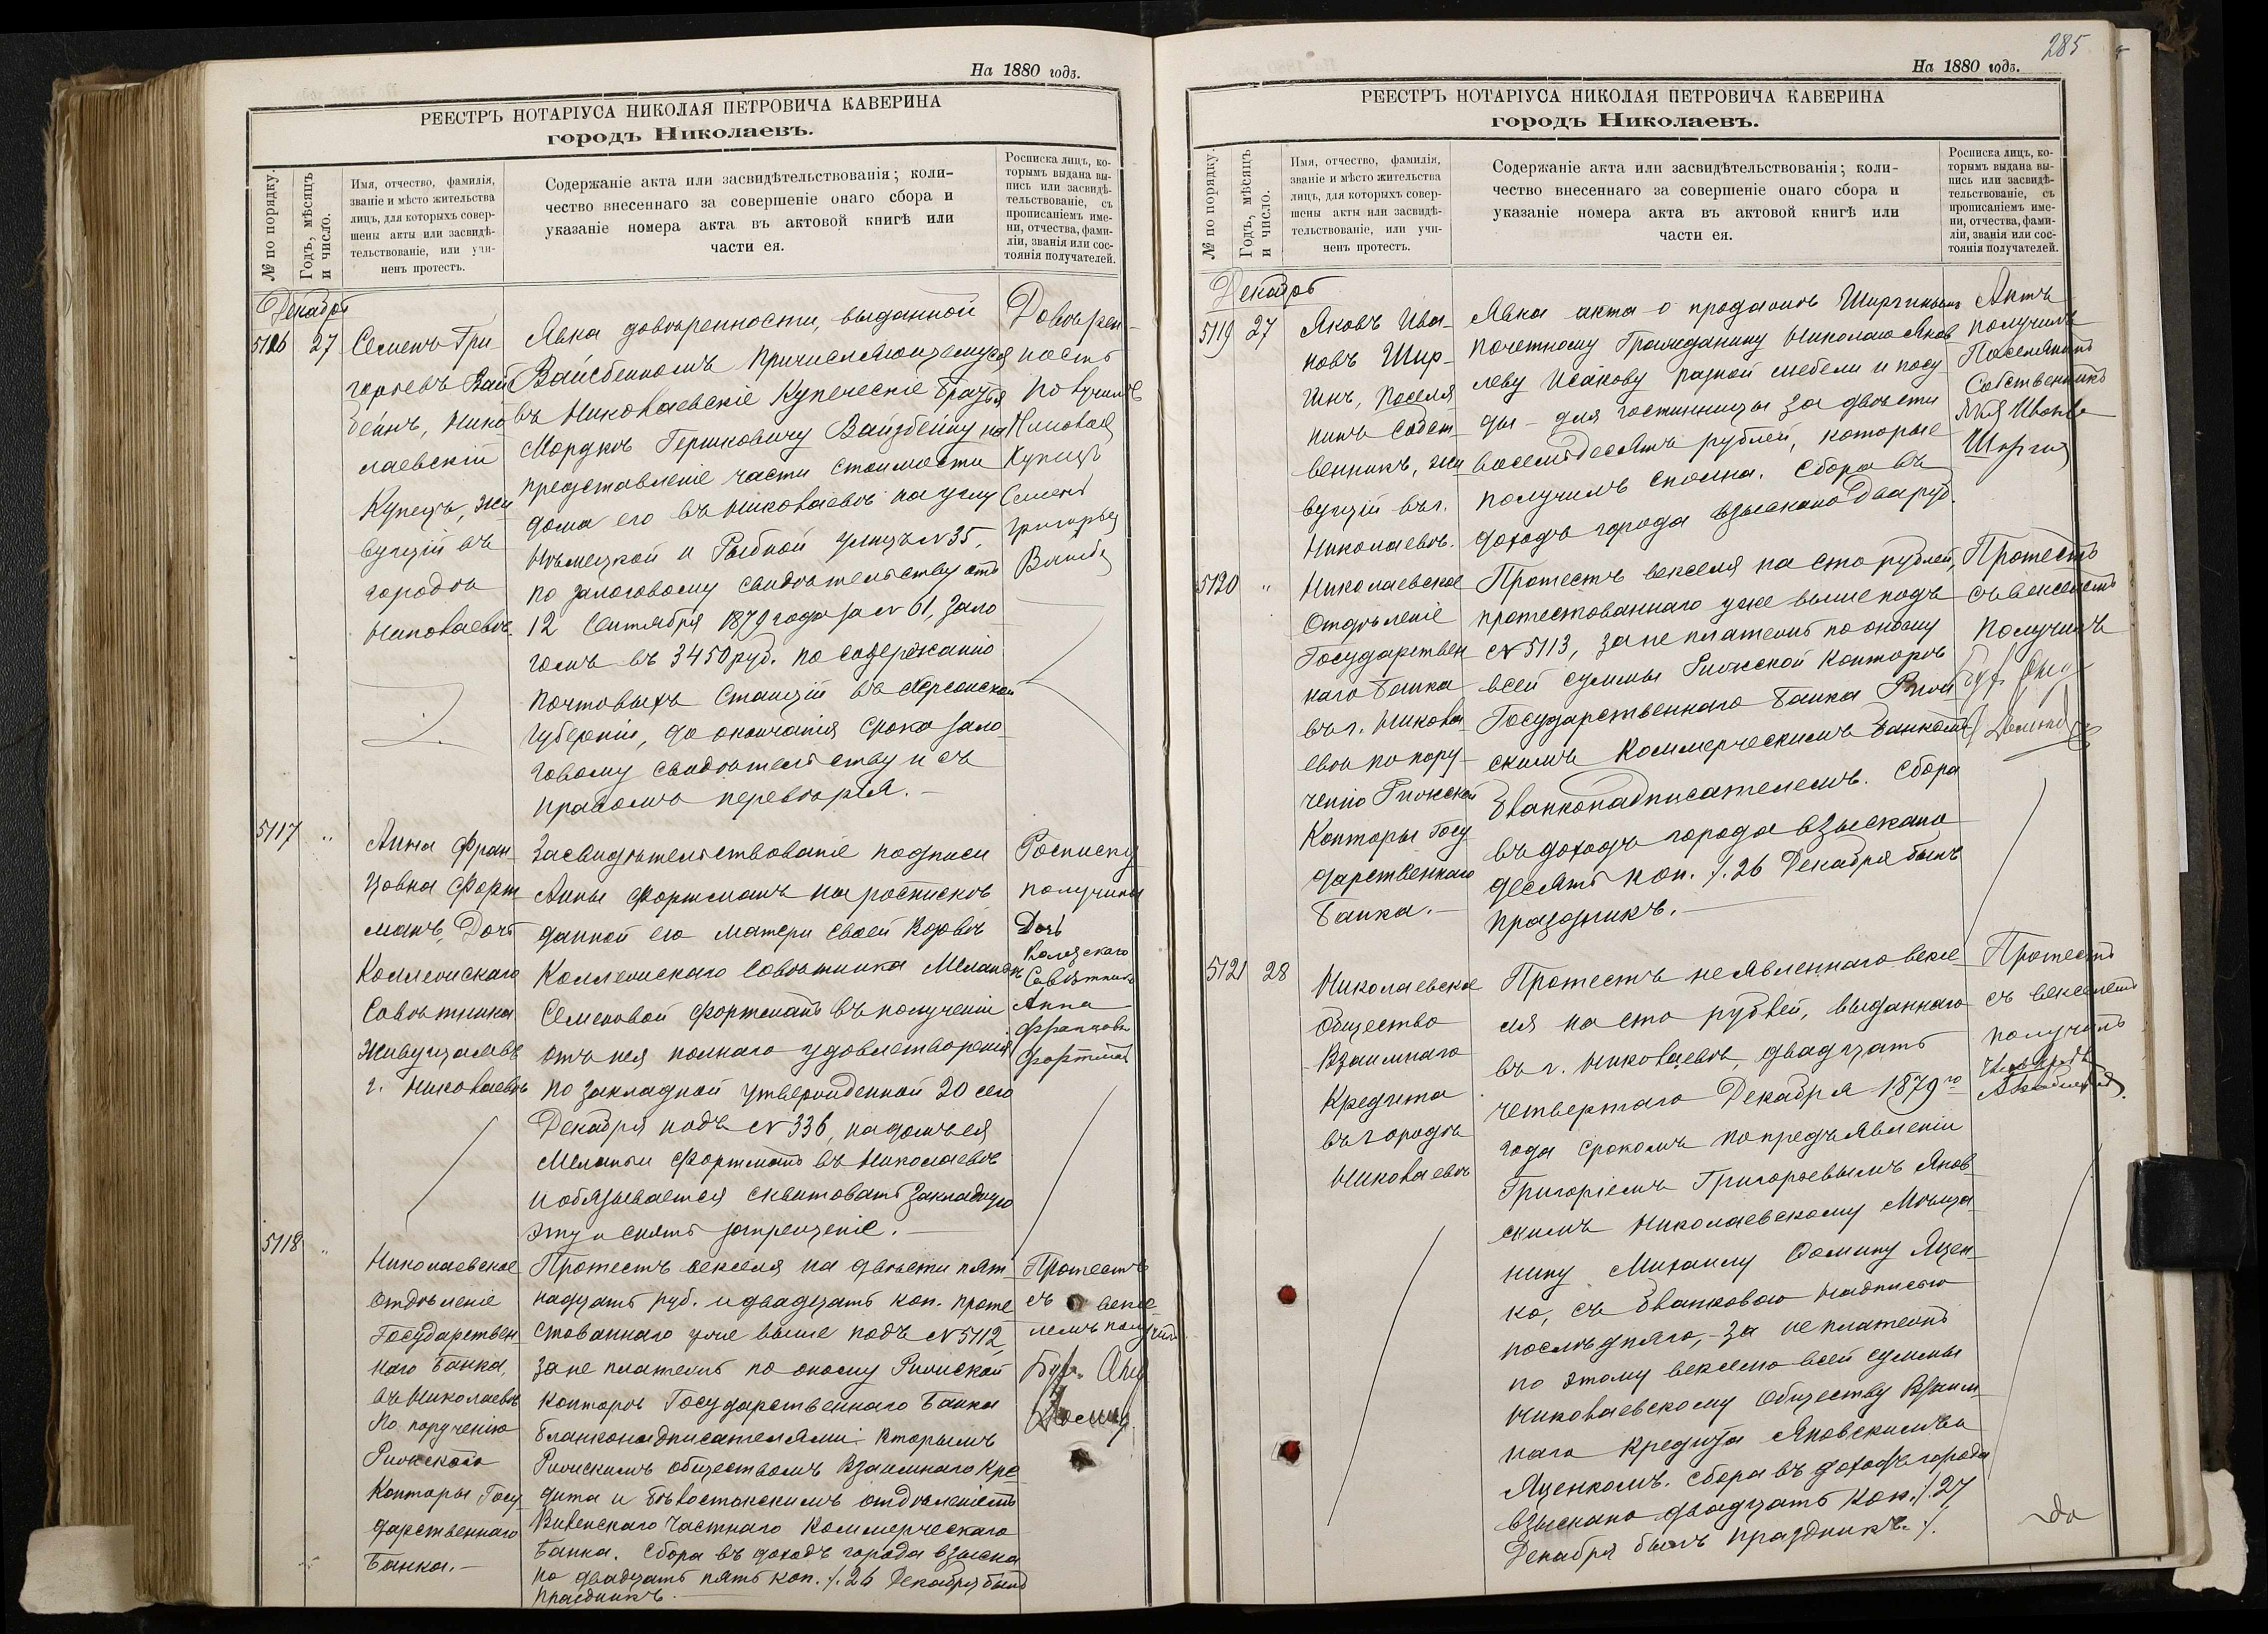 На 1880 годъ.
РЕЕСТРЪ НОТАРІУСА НИКОЛАЯ ПЕТРОВИЧА КАВЕРИНА
городъ Николаевъ.
№ по порядку.
Годъ, мѣсяцъ
и число.
Имя, отчество, фамилія,
званіе и мѣсто жительства
лицъ, для которыхъ совер-
шены акты или засвидѣ-
тельствованіе, или учи-
ненъ протестъ.
Содержаніе акта или засвидѣтельствованія; коли-
чество внесеннаго за совершеніе онаго сбора и
указаніе номера акта въ актовой книгѣ или
части ея.
Росписка лицъ, ко-
торымъ выдана вы-
пись или засвидѣ-
тельствованіе, съ
прописаніемъ име-
ни, отчества, фами-
ліи, званія или сос-
тоянія получателей.
Декабрь
5116
27
Семенъ Гри-
горьевъ Вайс
бейнъ, Нико
лаевскій
Купецъ, жи
вущій въ
городѣ
Николаевѣ.
Явка довѣренности, выданной
Вайсбейномъ причисляющемуся
въ Николаевскіе Купеческіе братья
Мордкѣ Гершковичу Вайзбейну, на
представленіе части стоимости
дома его въ Николаевѣ на углу
Нѣмецкой и Рыбной улицъ № 35,
по залоговому свидѣтельству отъ
12 Сентября 1879 года за № 61, зало
гомъ въ 3450 руб. по содержанію
почтовыхъ станцій въ Херсонской
Губерніи, до окончанія срока зало
говому свидѣтельству и съ
правомъ передовѣрія.
Довѣрен-
ность
получилъ
Николаев
Купецъ
Семенъ
Григорьев
5117
"
Анна Фран-
цовна Форт
манъ, Дочь
Коллежскаго
Совѣтника
живущая въ
г. Николаевѣ
Засвидѣтельствованіе подписи
Анны Фортманъ на роспискѣ
данной ею матери своей Вдовѣ
Коллежскаго Совѣтника Меланьѣ
Семеновой Фортманъ въ полученіи
отъ нея полнаго удовлетворенія
по закладной утвержденной 20 сего
Декабря подъ № 336, на домъ ея
Меланьи Фортманъ въ Николаевѣ
и обязывается сквитовать закладную
эту и снять запрещеніе.
Росписку
получила
Дочь
Колежскаго
Совѣтника
Анна
Францовна
Фортманъ
5118
"
Николаевское
Отдѣленіе
Государствен
наго Банка,
въ Николаевѣ
По порученію
Рижской
Конторы Госу
дарственнаго
Банка.
Протестъ векселя на двѣсти пят-
надцать руб. и двадцать коп. проте
стованнаго уже выше подъ № 5112,
за не платежъ по оному Рижской
Конторѣ Государственнаго Банка
бланконадписателями: Вторымъ
Рижскимъ обществомъ Взаимнаго Кре
дита и Бѣлостокскимъ отдѣленіемъ
Виленскаго Частнаго Коммерческаго
Банка. Сбора въ доходъ города взыска
но двадцать пять коп. ./. 26 Декабря былъ
праздникъ.
Протестъ
съ вексе-
лемъ получилъ
285
На 1880 годъ.
РЕЕСТРЪ НОТАРІУСА НИКОЛАЯ ПЕТРОВИЧА КАВЕРИНА
городъ Николаевъ.
№ по порядку.
Годъ, мѣсяцъ
и число.
Имя, отчество, фамилія,
званіе и мѣсто жительства
лицъ, для которыхъ совер-
шены акты или засвидѣ-
тельствованіе, или учи-
ненъ протестъ.
Содержаніе акта или засвидѣтельствованія; коли-
чество внесеннаго за совершеніе онаго сбора и
указаніе номера акта въ актовой книгѣ или
части ея.
Росписка лицъ, ко-
торымъ выдана вы-
пись или засвидѣ-
тельствованіе, съ
прописаніемъ име-
ни, отчества, фами-
ліи, званія или сос-
тоянія получателей.
Декабрь
5119
27
Яковъ Ива-
новъ Шир-
гинъ, поселя
нинъ собст-
венникъ, жи
вущій въ г.
Николаевѣ.
Явка акта о продажѣ Ширгинымъ
почетному Гражданину Николаю Яков
леву Исакову разной мебели и посу
ды – для гостинницы за двѣсти
восемьдесятъ рублей, которые
получилъ сполна. Сбора въ
доходъ города взыскано два руб.
Актъ
получилъ
Поселянинъ
Собственникъ
5120
"
Николаевское
Отдѣленіе
Государствен
наго Банка
въ г. Никола
евѣ по пору-
ченію Рижской
Конторы Госу
дарственнаго
Банка.
Протестъ векселя на сто рублей,
протестованнаго уже выше подъ
№ 5113, за не платежъ по оному
всей суммы Рижской Конторѣ
Государственнаго Банка Риж
скимъ Коммерческимъ Банкомъ,
бланконадписателемъ. Сбора
въ доходъ города взыскано
десять коп. ./. 26 Декабря былъ
праздникъ.
Протестъ
съ векселемъ
получилъ
5121
28
Николаевское
Общество
Взаимнаго
Кредита
въ городѣ
Николаевѣ
Протестъ неявленнаго вексе-
ля на сто рублей, выданнаго
въ г. Николаевѣ, двадцать
четвертаго Декабря 1879го
года срокомъ по предъявленіи
Григоріемъ Григорьевымъ Янов
скимъ Николаевскому Мѣща
нину Михаилу Фомину Яцен-
ко, съ бланковою надписью
послѣдняго, – за не платежъ
по этому векселю всей суммы
Николаевскому Обществу Взаим
наго Кредита Яновскимъ и
Яценкомъ. Сбора въ доходъ города
взыскано двадцать коп. ./. 27
Декабря былъ праздникъ. ./.
Протестъ
съ векселемъ
получилъ